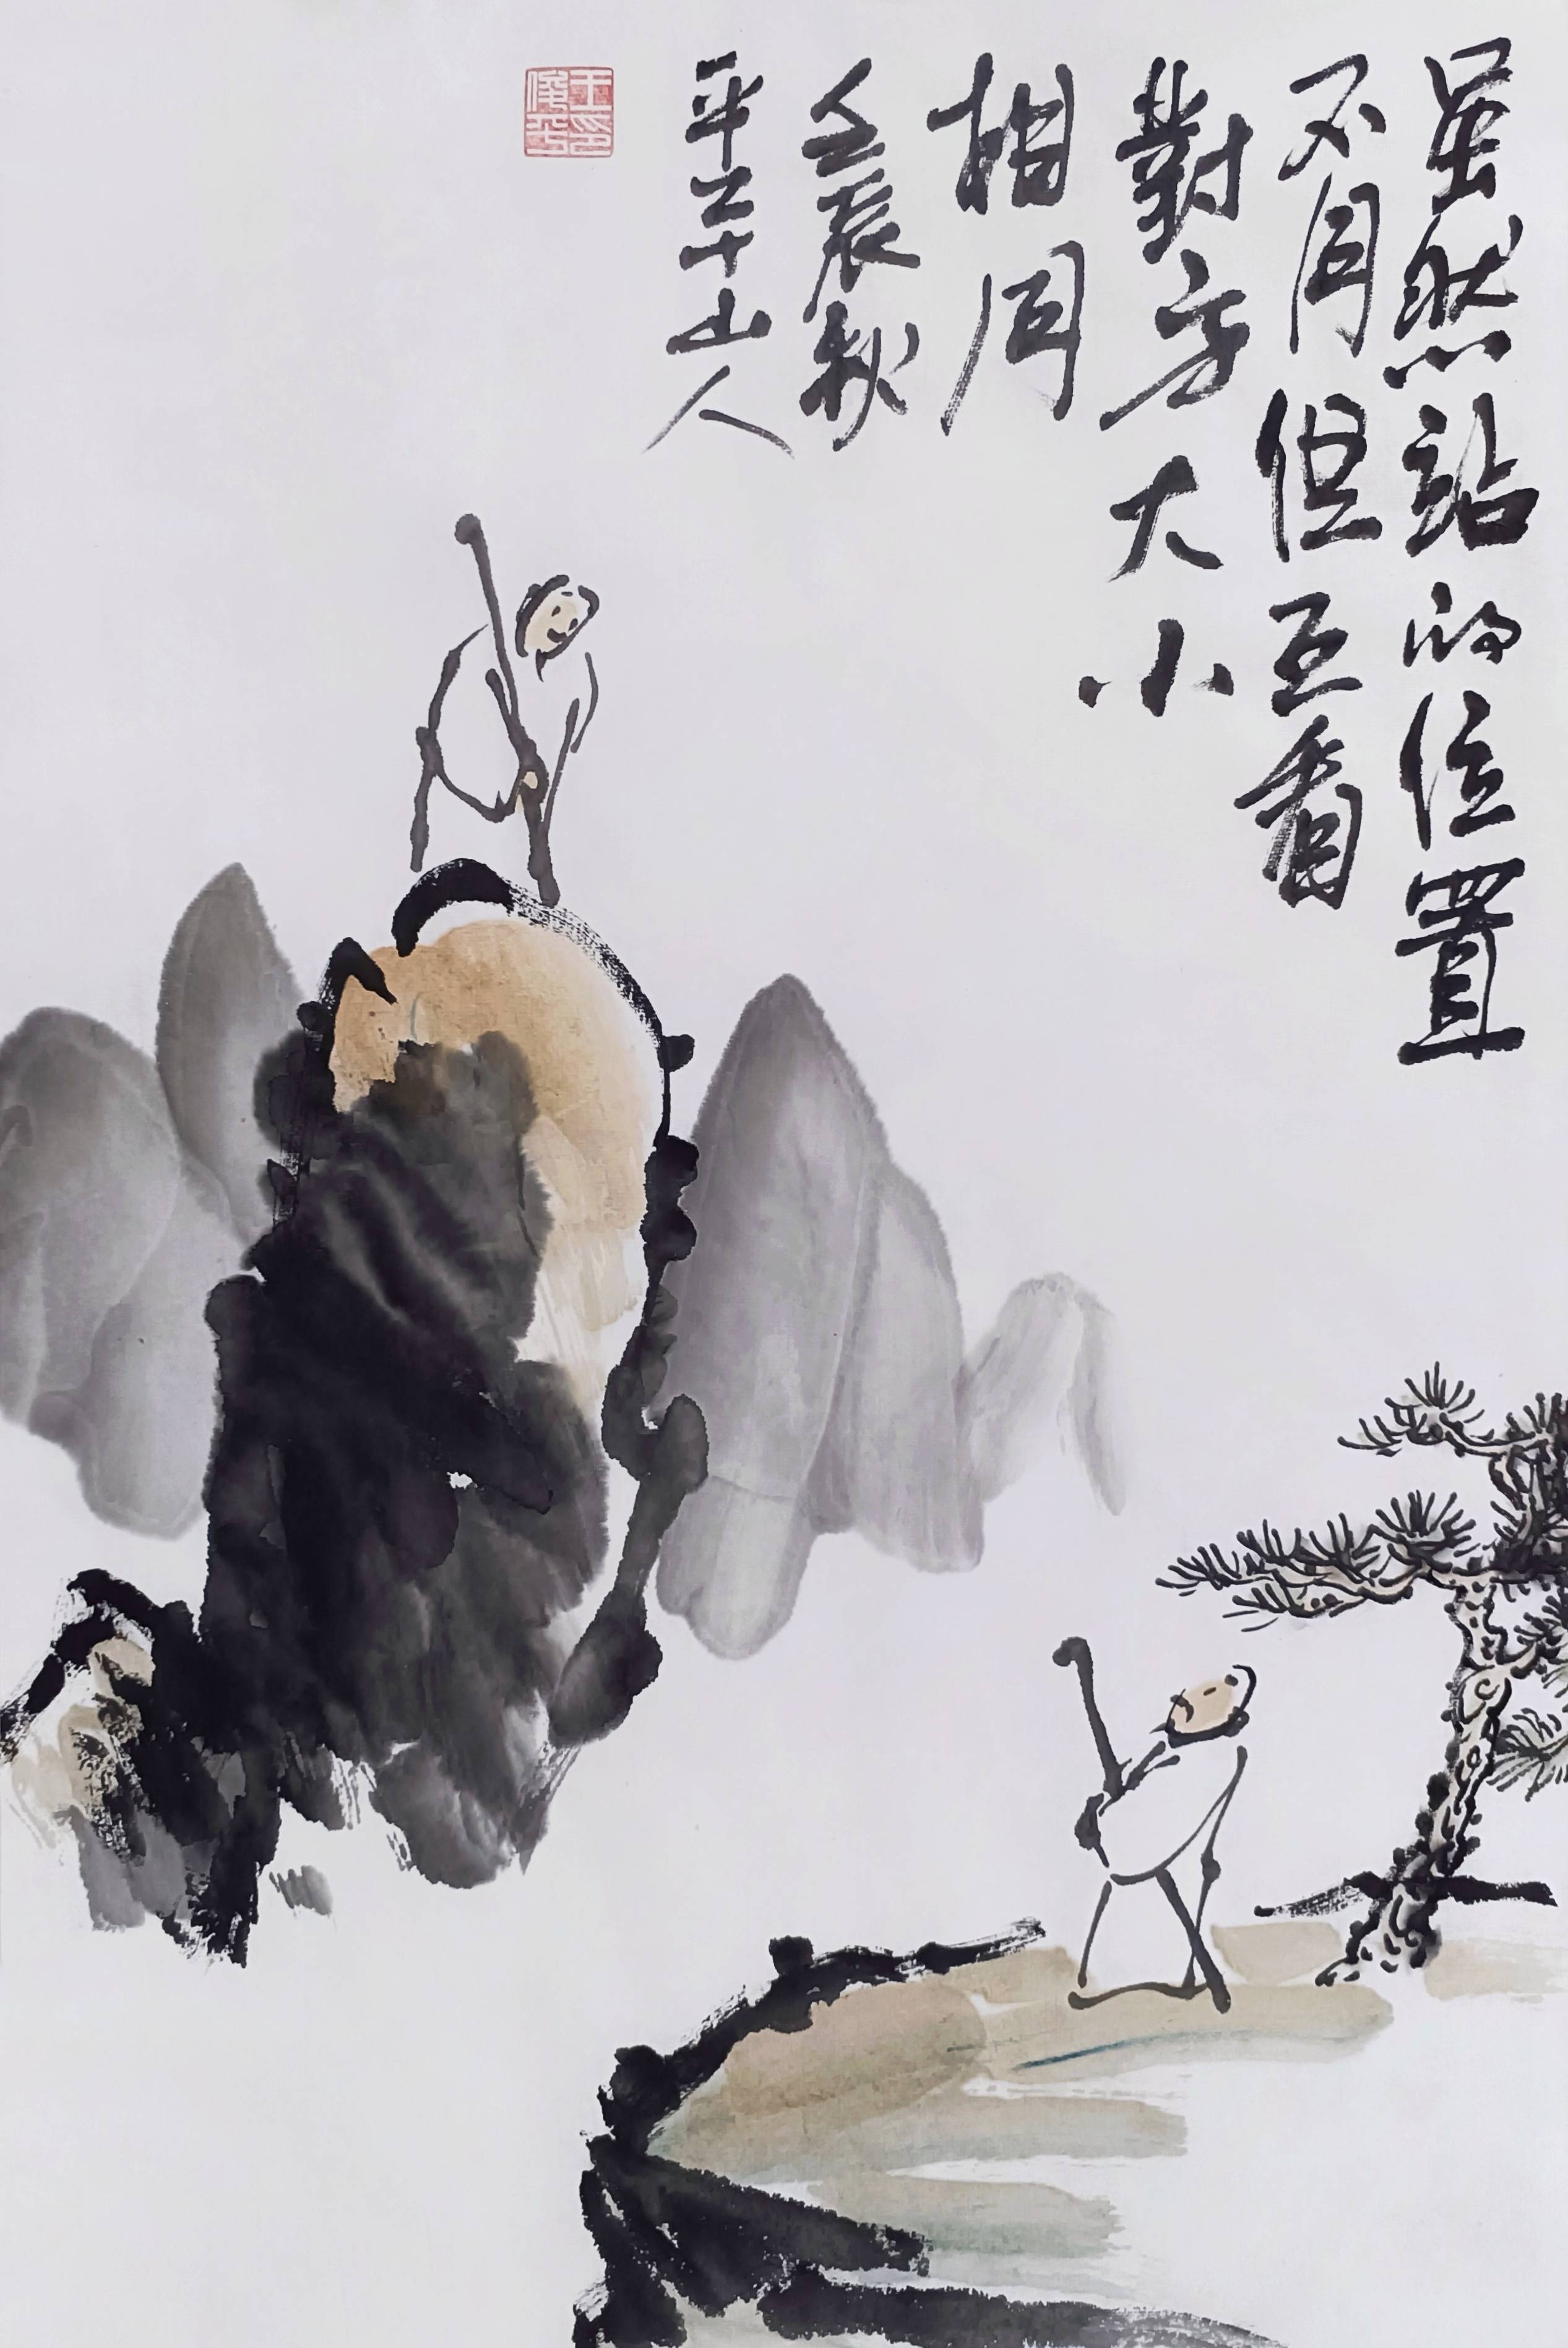 虽然站的位置
不同但互看
對方大小
相同
壬辰秋
平 山人
王印
俊平